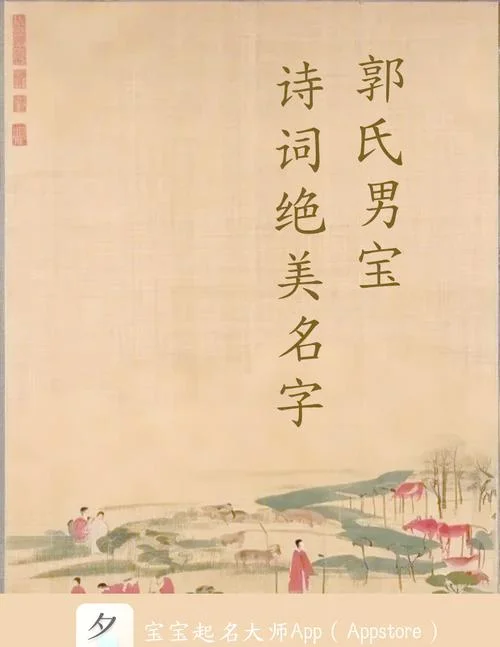 郭氏男宝
诗词绝美名字
夕 宝宝起名大师App（Appstore）